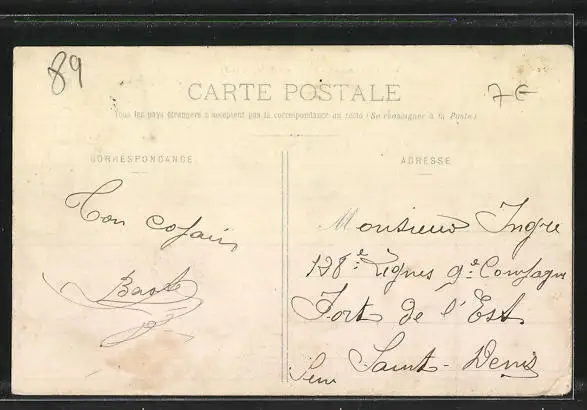 89
7€
CARTE POSTALE
Tous les pays étrangers n'acceptent pas la correspondance au recto (Se renseigner à la Poste)
CORRESPONDANCE
ADRESSE
Ton copain
Monsieur Ingre
128e Lignes 9e Compagnie
Fort de l'Est
Saint-Denis
Seine